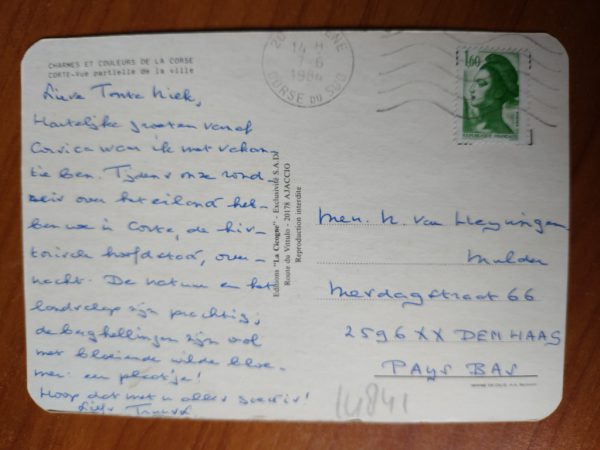 CHARMES ET COULEURS DE LA CORSE
CORTE-Vue partielle de la ville
Lieve Tante Niek,
Hartelijke groeten vanaf
Corsica waar ik met vakan-
tie ben. Tijdens onze rond-
reis over het eiland heb-
ben we in Corte, de his-
torische hoofdstad, over-
nacht. De natuur en het
landschap zijn prachtig,
de berghellingen zijn vol
met bloeiende wilde bloe-
men: een plaatje!
Hoop dat met u alles goed is!
Liefs
Editions "La Cicogne" - Exclusivité S.A.D.
Route du Vittulo - 20178 AJACCIO
Reproduction interdite
14 H
7-6
1984
CORSE DU SUD
1,60
Mev. N. van Heyningen
Mulder
Merdagstraat 66
2596 XX DEN HAAG
PAYS BAS
14841